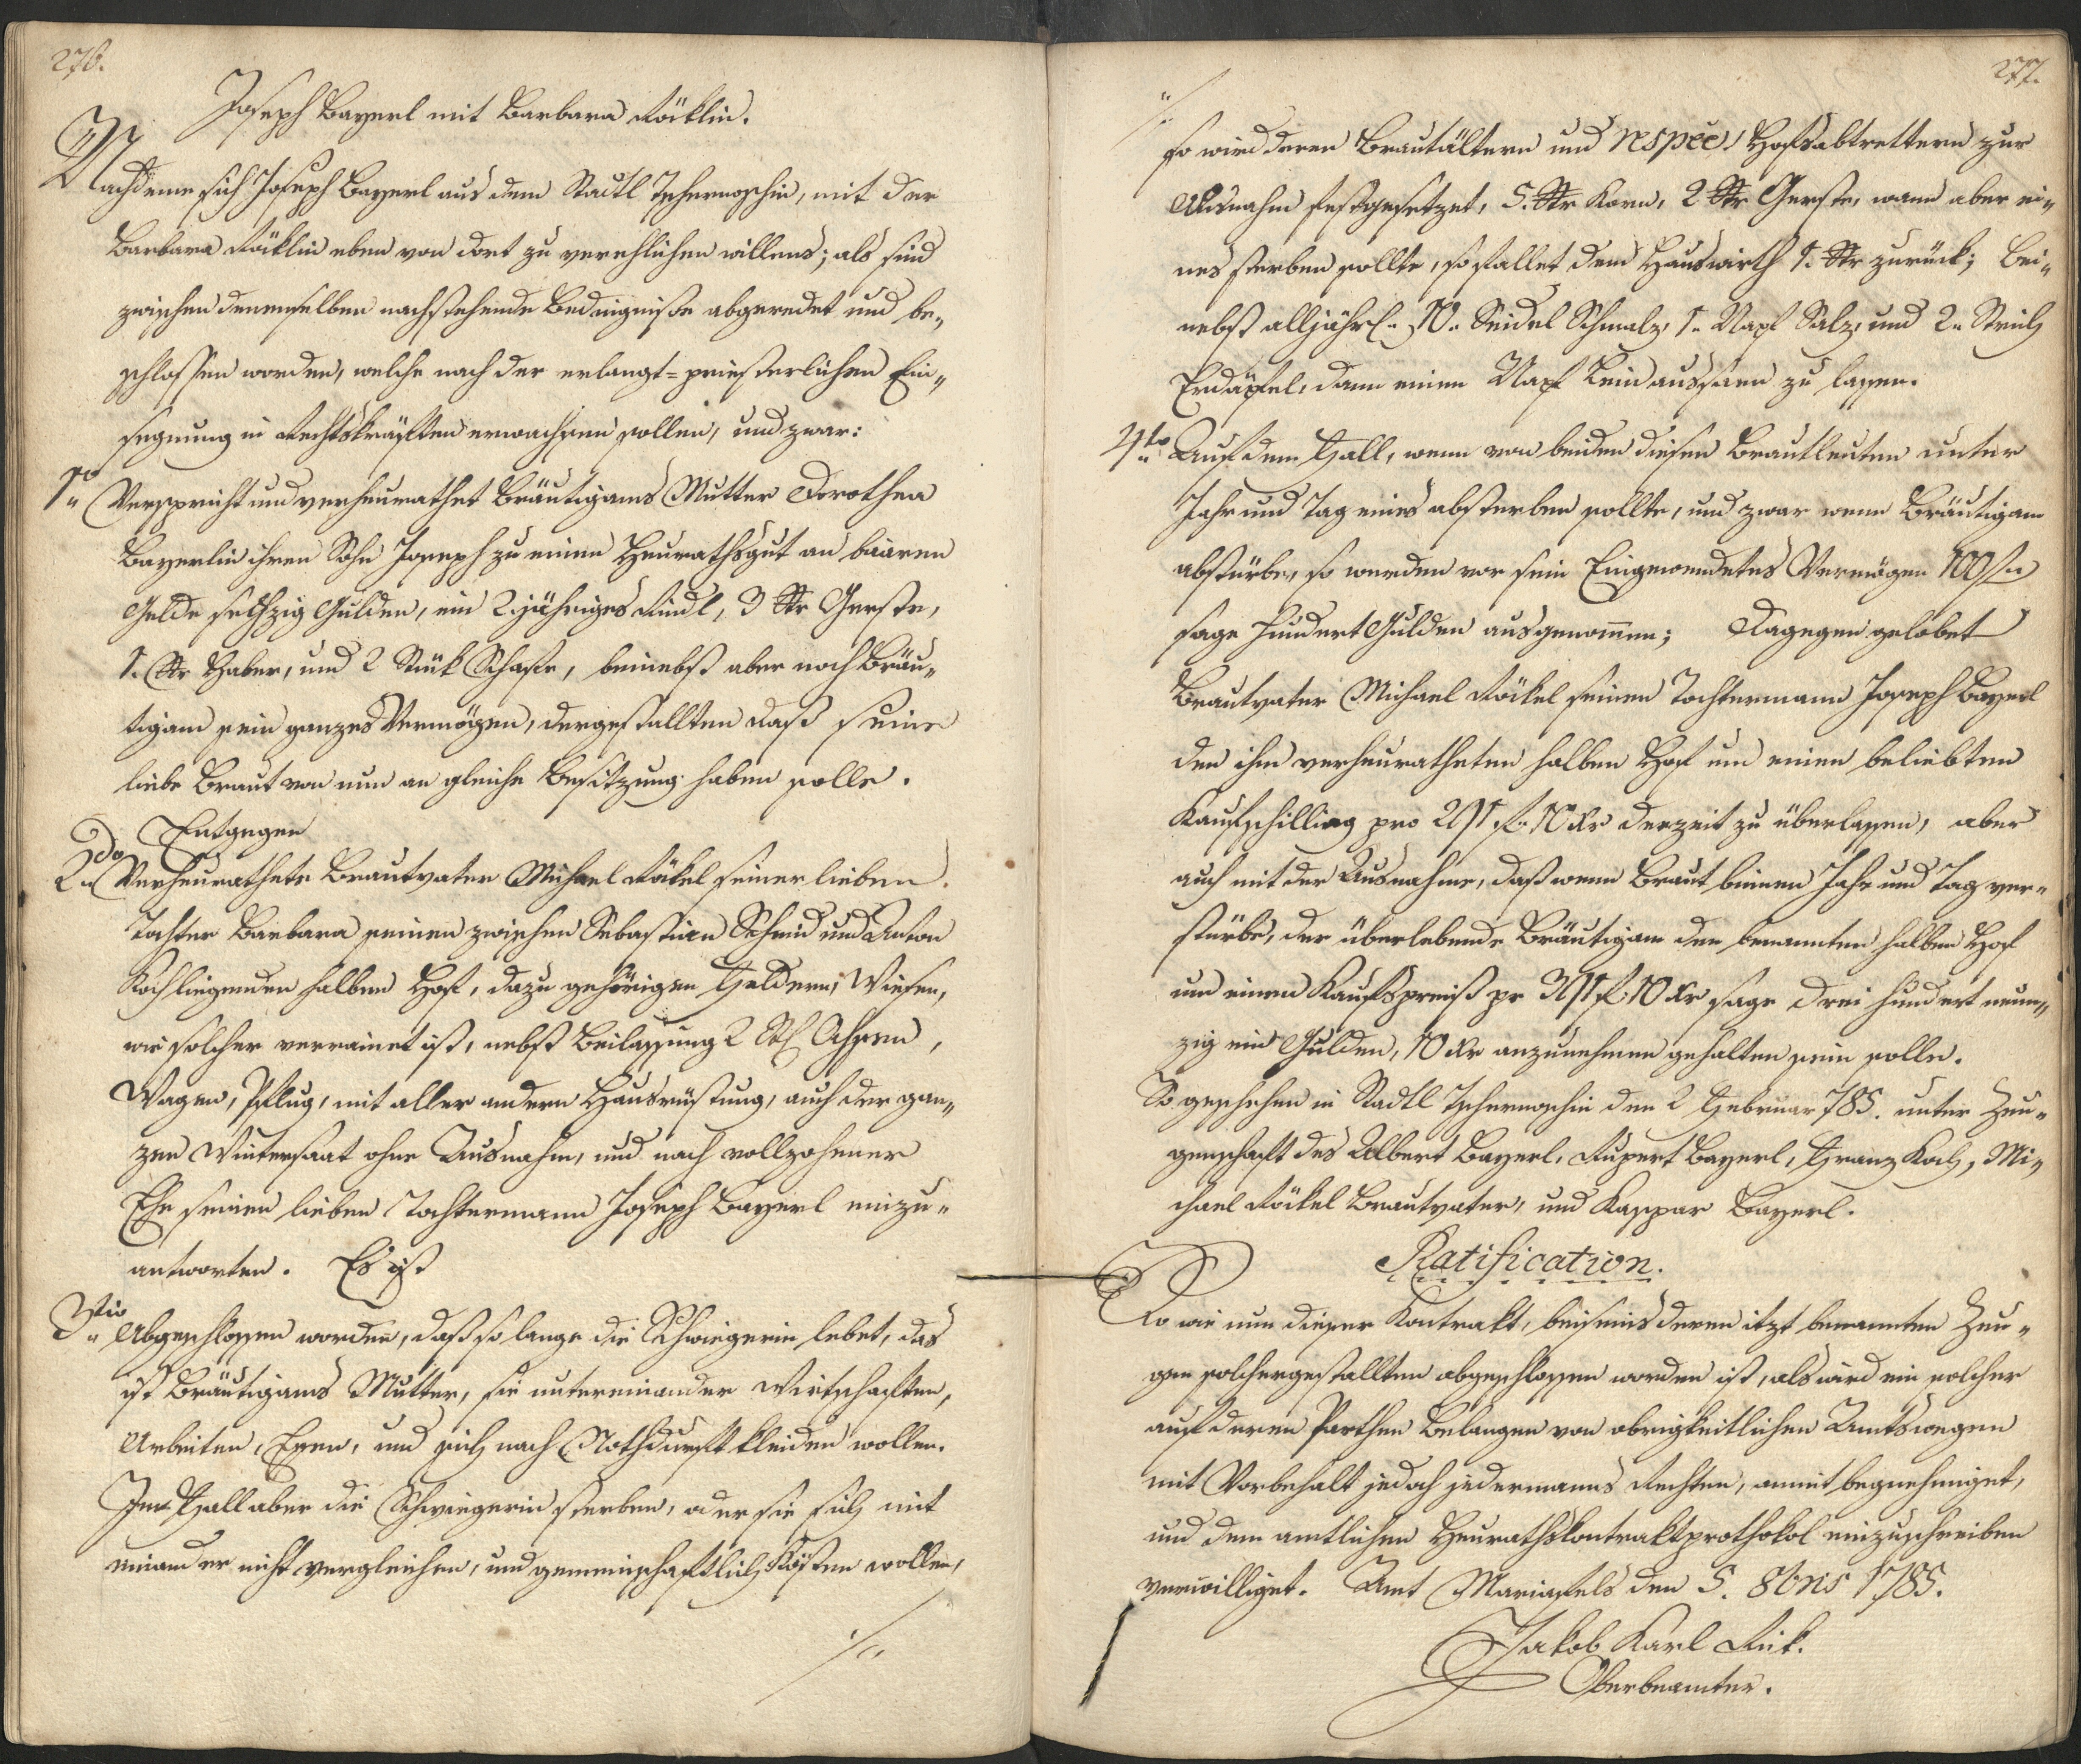 276.
Joseph Bayerl mit Barbara Röklin.
Nachdeme sich Joseph Bayerl aus dem Stadtl Tschernoschin, mit der
Barbara Röklin eben von dort zu verehlichen willens; als sind
zwischen denenselben nachstehende Bedingniße abgeredet und be„
schlossen worden, welche nach der erlangt=priesterlichen Ein„
segnung in Rechtskräfften erwachsen sollen, und zwar:
1mo Verspricht und verheurathet Bräutigams Mutter Dorothea
Bayerlin ihren Sohn Joseph zu einen Heurathsgut an baaren
Gelde sechzig Gulden, ein 2.jähriges Rindl, 3 Str Gerste,
1. Str Haber, und 2 Stük Schafe, beinebst aber noch Bräu„
tigam sein ganzes Vermögen, dergestallten daß seine
liebe Braut von nun an gleiche Besitzung haben solle.
Entgegen
2do Verheurathete Brautvater Michael Rökel seiner lieben
Tochter Barbara seinen zwischen Sebastian Schmid und Anton
Koch liegenden halben Hof, dazu gehörigen Feldern, Wiesen,
wie solcher verrainet ist, nebst Beilassung 2 Stk Ochsen,
Wagen, Pflug, mit aller andern Hausrüstung, auch der gan„
zen Wintersaat ohne Ausnahm, und nach vollzohener
Ehe seinen lieben Tochtermann Joseph Bayerl einzu„
antworten. Es ist
3tio Abgeschlossen worden, daß so lange die Schwiegerin lebet, das
ist Bräutigams Mutter, sie untereinander Wirtschaften,
Arbeiten, Essen, und sich nach Nothdurft kleiden wollen.
Im Fall aber die Schwiegerin sterben, oder sie sich mit
einander nicht vergleichen, und gemeinschaftlich Kösten wollen,
./.
277.
./.
so wird deren Brautältern und respēe Hofsabtrettern zur
Ausnahm festgesetzet, 5. Str Korn, 2 Str Gerste, wann aber ei„
nes sterben sollte, so fallet dem Hauswirth 1. Str zurück; Bei„
nebst alljährl. 10. Seidel Schmalz, 1. Napf Salz, und 2. Strich
Erdäpfel, dann einen Napf Lein aussäen zu lassen.
4to Auf dem Fall, wenn von beiden diesen Brautleuten unter
Jahr und Tag eines absterben sollte, und zwar wenn Bräutigam
abstürbe, so werden vor sein Eingewendetes Vermögen 100 f
sage Hundert Gulden ausgenom̄en; Dagegen gelobet
Brautvater Michael Rökel seinen Tochtermann Joseph Bayerl
den ihm verheuratheten halben Hof um einen beliebten
Kaufschilling pro 291 f. 10 Xr derzeit zu überlassen, aber
auch mit der Ausnahme, daß wenn Braut binnen Jahr und Tag ver„
stürbe, der überlebende Bräutigam den benannten halben Hof
um einen Kaufspreiß pr 391 f 10 Xr sage drei hundert neun„
zig ein Gulden, 10 Xr anzunehmen gehalten sein solle.
So geschehen in Stadtl Tschernoschin den 2 Februar 785. unter Zeu„
genschaft des Albert Bayerl, Rupert Bayerl, Franz Koch, Mi„
chael Rökel Brautvater, und Kaspar Bayerl.
Ratification.
So wie nun dieser Kontrakt, beiseins deren itzt benannten Zeu„
gen solchergestallten abgeschlossen worden ist, als wird ein solcher
auf deren Parthen Belangen von obrigkeitlichen Amtswegen
mit Vorbehalt jedoch jedermanns Rechten, anmit begnehmiget,
und dem amtlichen Heurathskontraktprothokol einzuschreiben
verwilliget. Amt Mariafels den 5. 8bris 1785.
Jakob Karl Rük.
Oberbeamter.